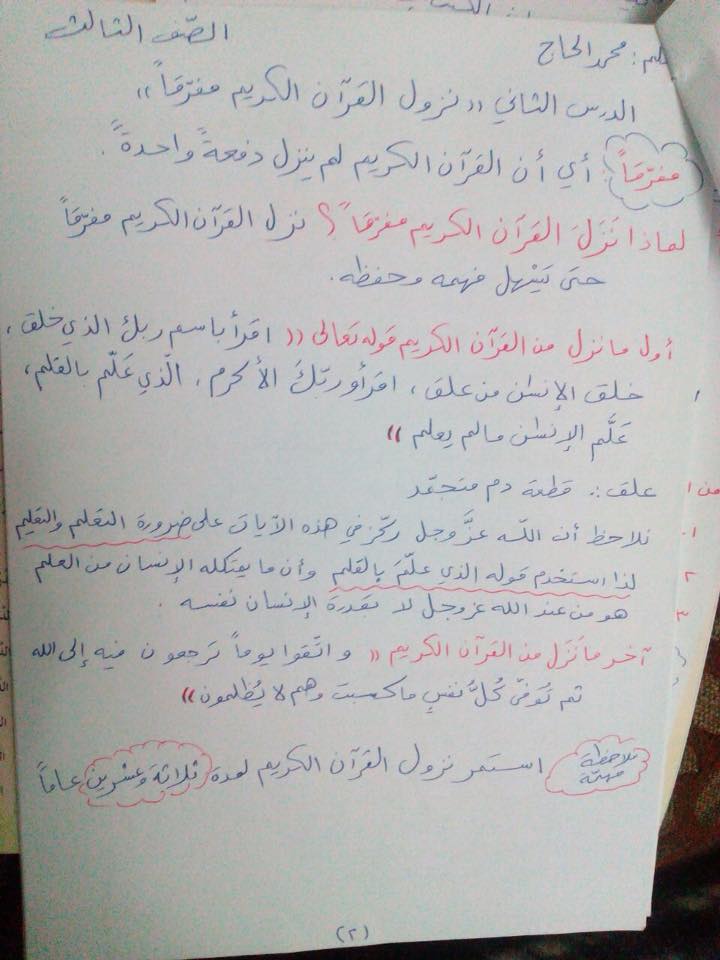 علم: محمد الحاج
الصّف الثالث
الدرس الثاني ((نزول القرآن الكريم مفرّقاً))
مفرّقاً: أي أن القرآن الكريم لم ينزل دفعةً واحدةً.
لماذا نَزَلَ القرآن الكريم مفرقاً؟ نزل القرآن الكريم مفرّقاً
حتى يَسْهل فهمه وحفظه.
أول ما نزل من القرآن الكريم قوله تعالى (( اقرأ باسم ربك الذي خلق،
خلق الإنسٰن من علق، اقرأ وربّكَ الأكرم، الّذي عَلّم بالقلم،
عَلَّم الإنسٰن مالم يعلم ))
علق: قطعة دم متجمّد
نلاحظ أن اللّه عزَّوجل ركّز في هذه الآيات على ضرورة التعلم والتعليم
لذا استخدم قوله الذي علّمَ بالقلم وأن ما يمتلكه الإنسان من العلم
هو من عند الله عزوجل لا بقدرة الإنسان نفسه.
آخر ما نَزَل من القرآن الكريم (( واتّقوا يوماً تُرجعون فيه إلى الله
ثم تُوفّى كُلُّ نفسٍ ما كسبت وهم لا يُظلمون ))
ملاحظة مهمّة
استمر نزول القرآن الكريم لمدة ثلاثة وعشرين عاماً
(٢)